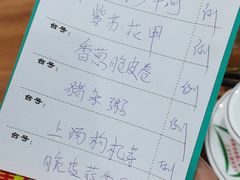 紫苏花甲 例
台号:
香葱脆皮卷 例
台号:
猪杂粥 例
台号:
上汤枸杞菜 例
台号:
脆皮